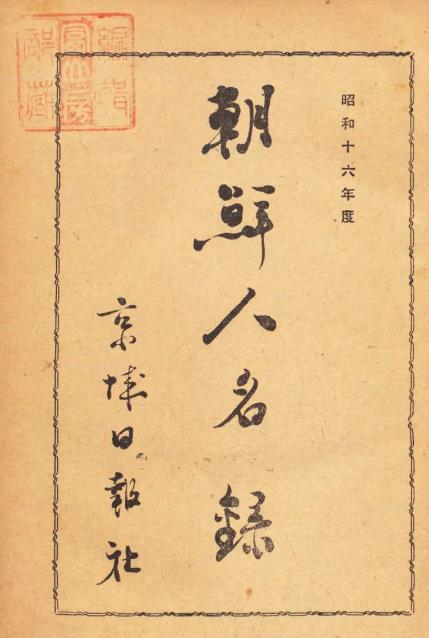 昭和十六年度
朝鮮人名録
京城日報社